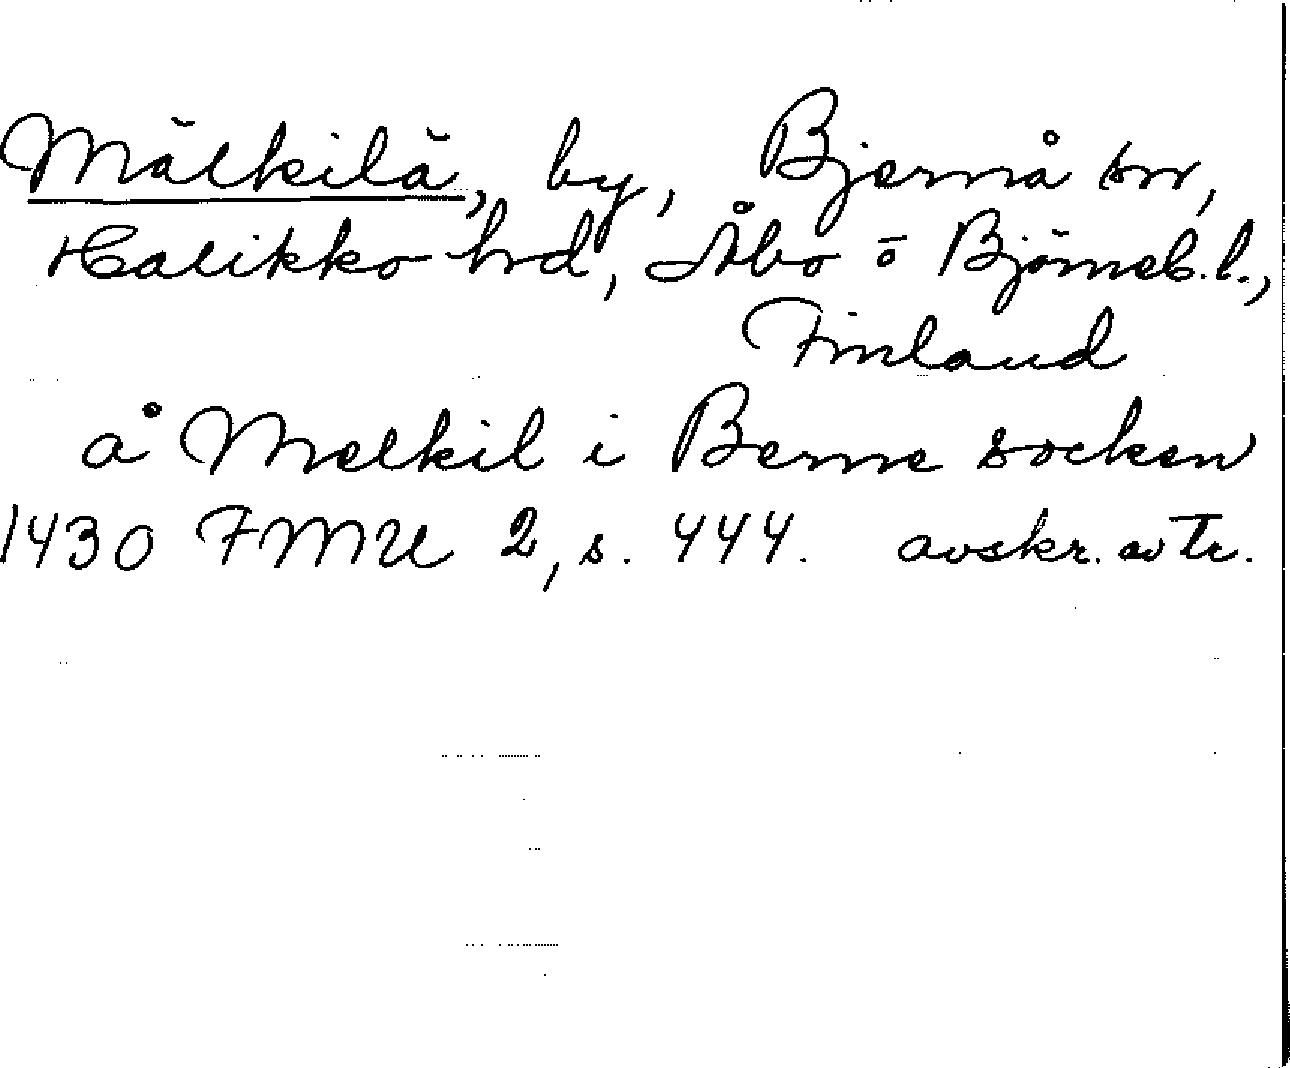 Mälkilä, by, Bjernå sn,
Halikko hrd, Åbo o Björneb. l.,
Finland
å Melkil i Berne socken
1430 FMU 2, s. 444. avskr. av Tr.